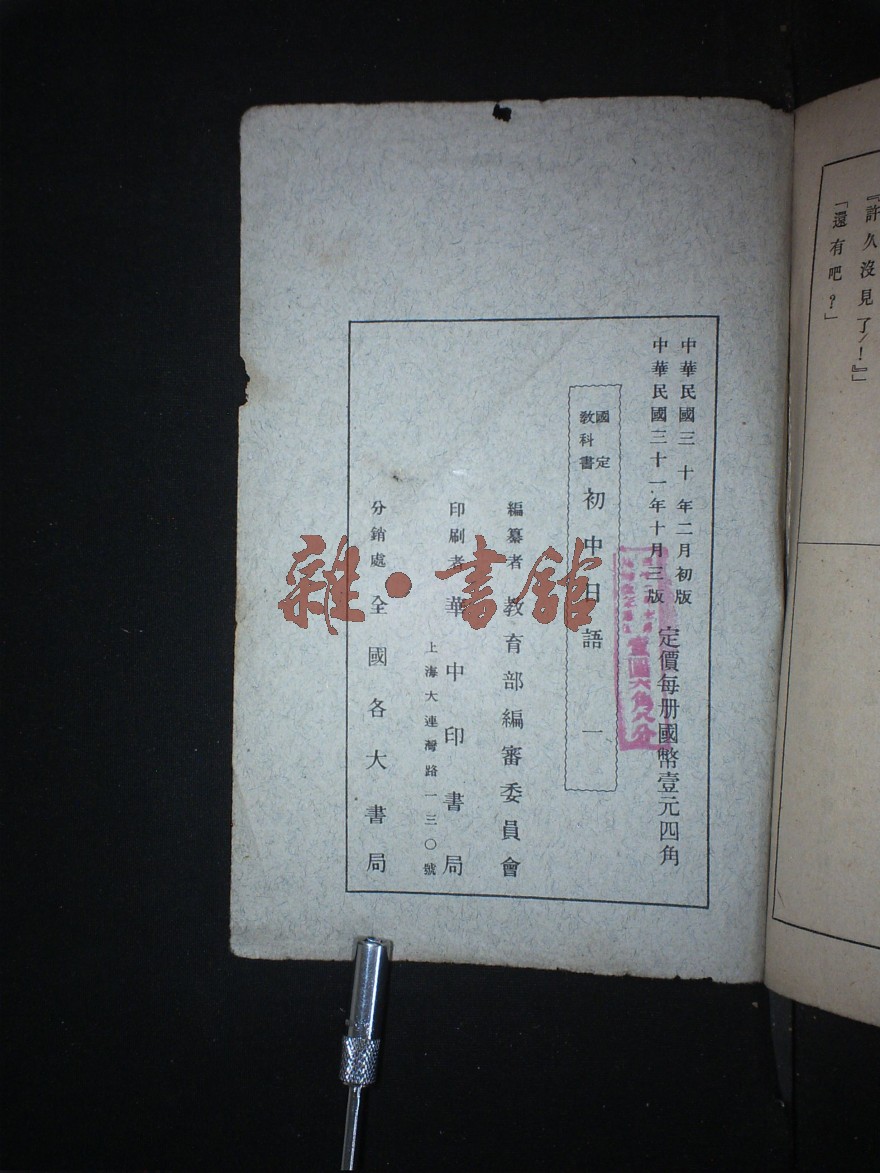 『許久沒見了！』」
「還有吧？」
中華民國三十年二月初版
中華民國三十一年十月三版
定價每册國幣壹元四角
壹圓六角八分
國定教科書
初中日語 一
編纂者 教育部編審委員會
印刷者 華中印書局
上海大連灣路一三〇號
分銷處 全國各大書局
雜·書館